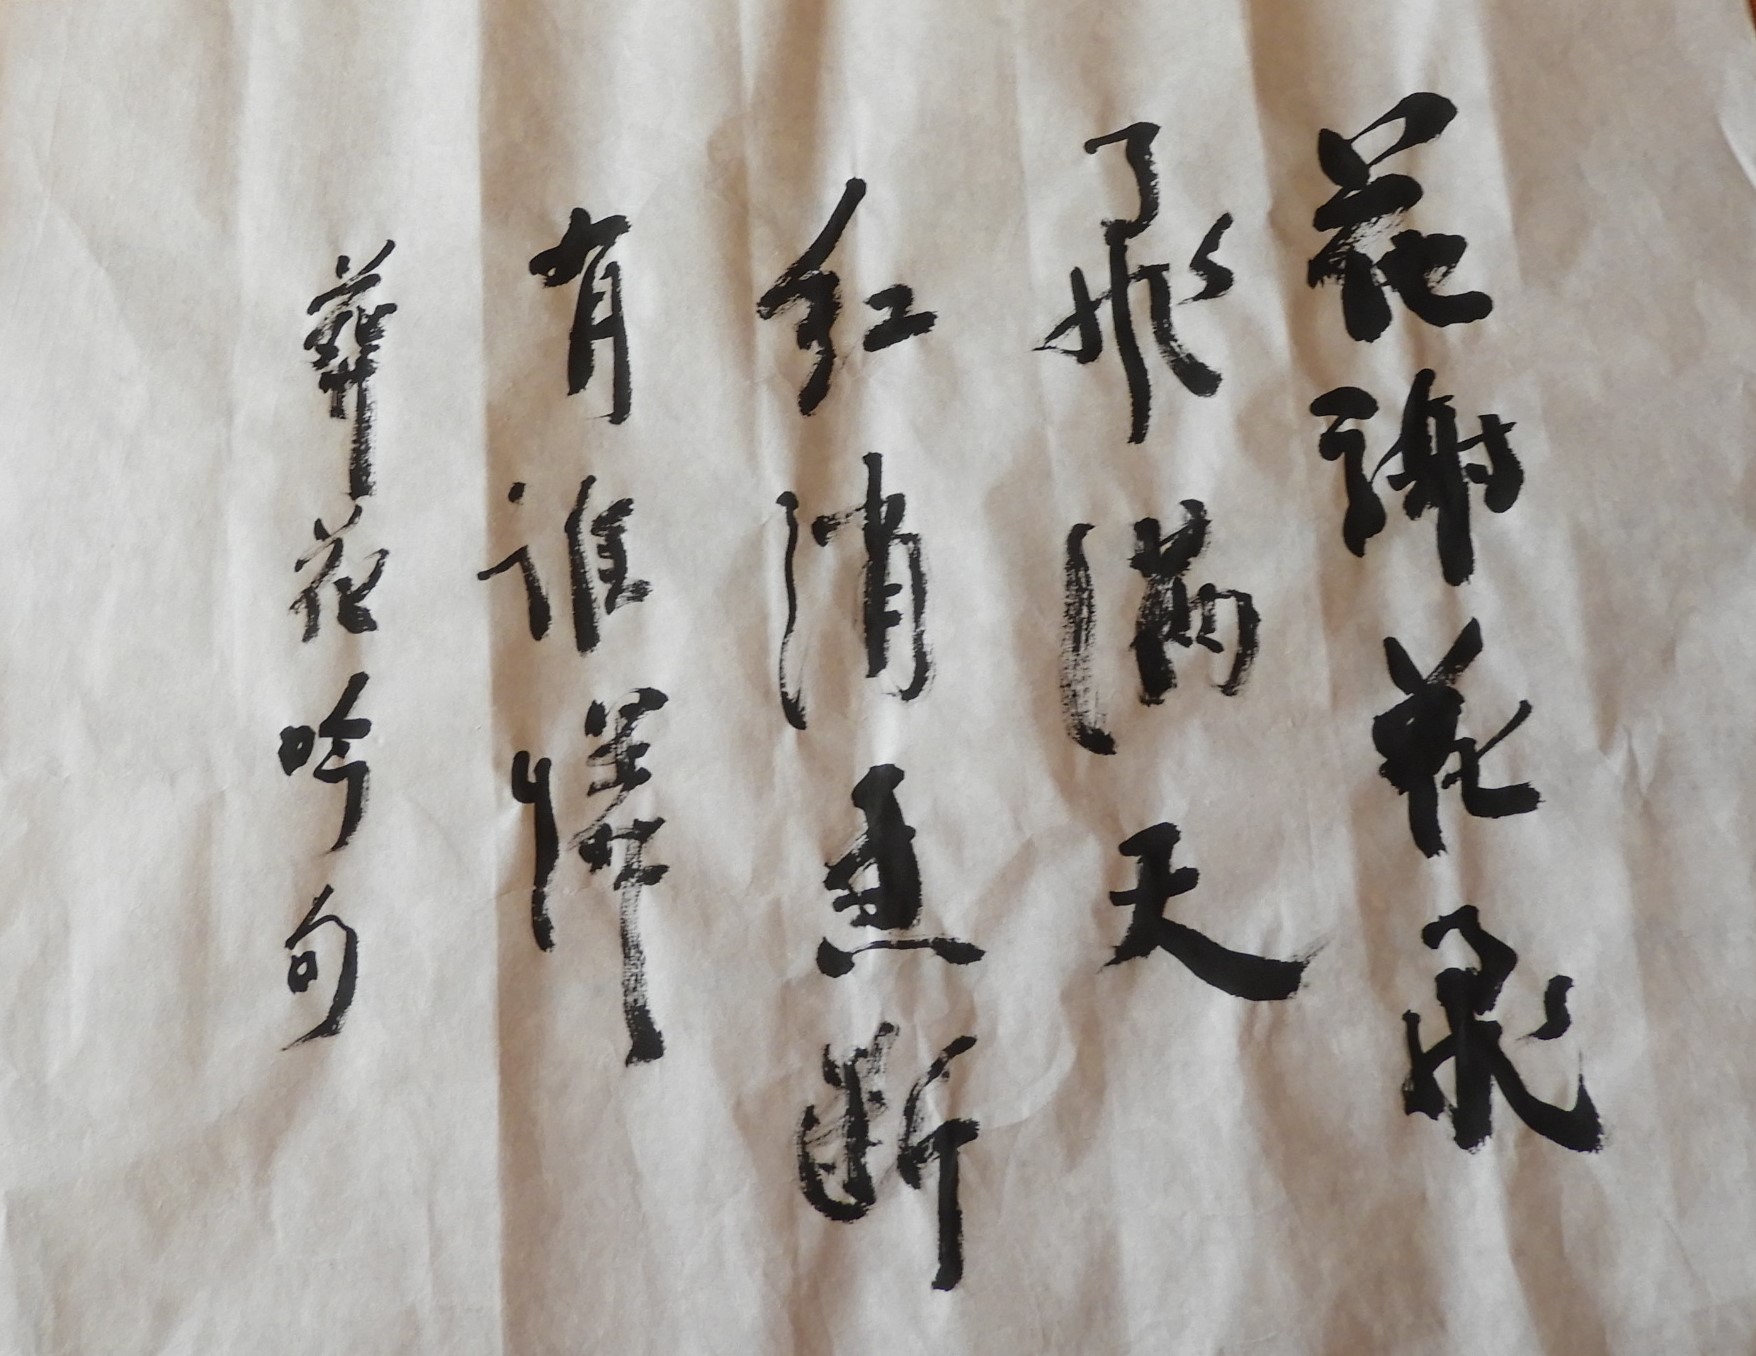 花謝花飛
飛滿天
紅消香斷
有誰憐
葬花吟句